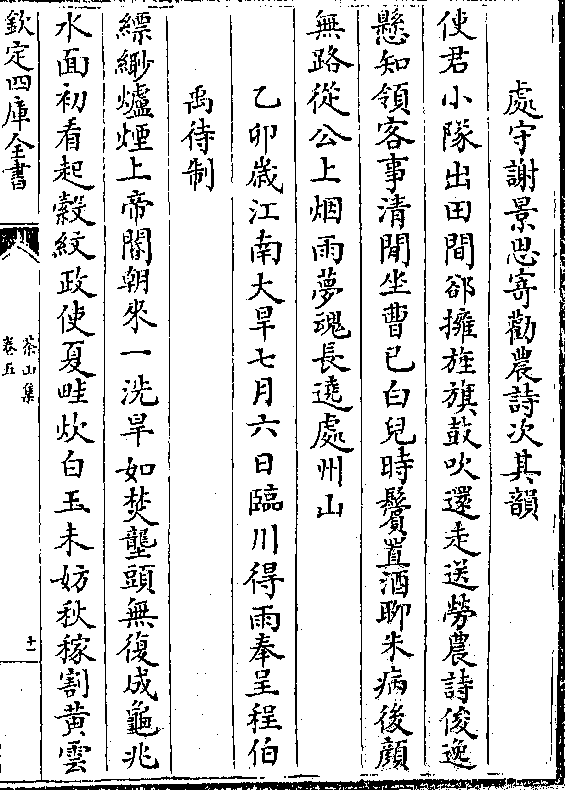 處守謝景思寄勸農詩次其韻
使君小隊出田間郤擁旌旗鼓吹還走送勞農詩俊逸
懸知領客事清閒坐曹已白兒時鬢置酒聊朱病後顔
無路從公上烟雨夢魂長遶處州山
乙卯歳江南大旱七月六日臨川得雨奉呈程伯
禹待制
縹緲爐煙上帝閽朝來一洗旱如焚壟頭無復成龜兆
水面初看起縠紋政使夏畦炊白玉未妨秋稼割黄雲
欽定四庫全書
茶山集
卷五
十一